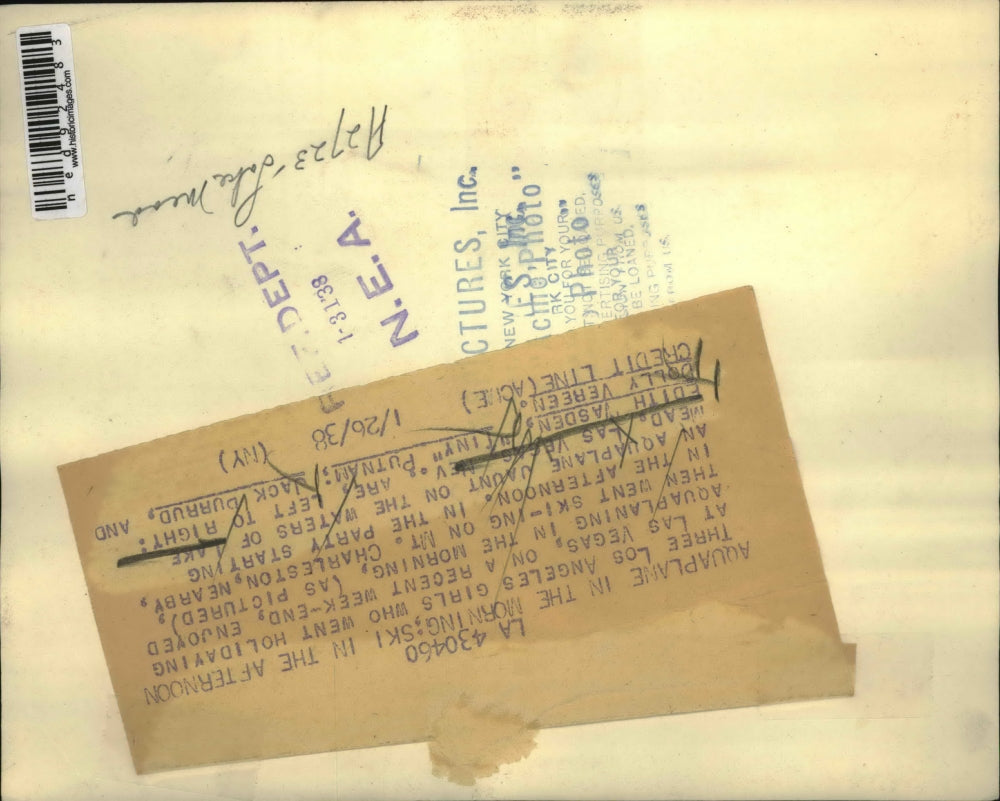 LA 430460
AQUAPLANE IN THE MORNING;SKI IN THE AFTERNOON
THREE LOS ANGELES GIRLS WHO WENT HOLIDAYING
AT LAS VEGAS, ON A RECENT WEEK-END, ENJOYED
AQUAPLANING IN THE MORNING, (AS PICTURED),
THEN WENT SKI-ING ON MT. CHARLESTON, NEARBY,
IN THE AFTERNOON. IN THE PARTY STARTING
AN AQUAPLANE JAUNT ON THE WATERS OF LAKE
MEAD, LAS VEGAS, NEV. ARE LEFT TO RIGHT:
EDITH WASDEN, "TINY" PUTNAM; JACK DURRUD, AND
DOLLY VEREEN.
CREDIT LINE (ACME) 1/26/38 (NY)
REF. DEPT.
1-31-38
N.E.A.
CTURES, Inc.
NEW YORK CITY
Photo"
RK CITY
YOU FOR YOUR
Photo"
BE LOANED.
A2723 Lake Mead
ned92483
www.historicimages.com